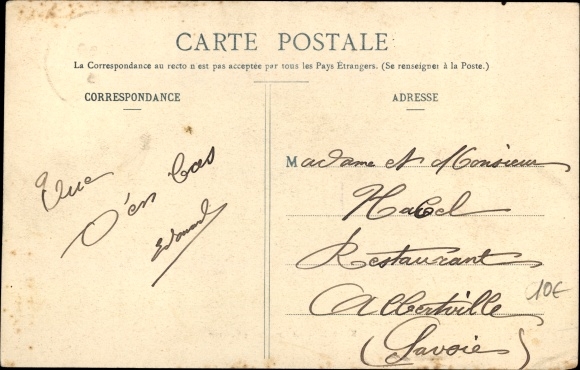 CARTE POSTALE
La Correspondance au recto n'est pas acceptée par tous les Pays Etrangers. (Se renseigner à la Poste.)
CORRESPONDANCE
ADRESSE
Vue
D'en bas
Edouard
Madame et Monsieur
Habel
Restaurant
Albertville
(Savoie)
10€